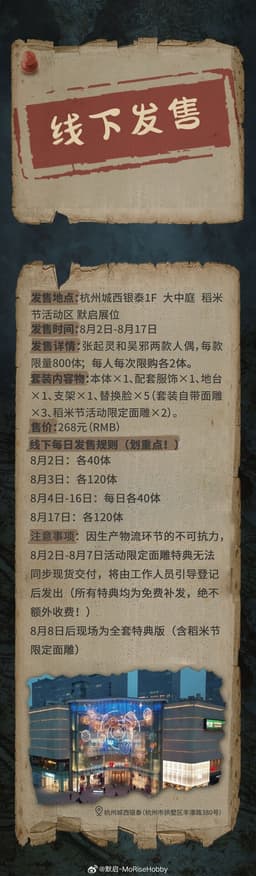 线下发售
发售地点:杭州城西银泰1F 大中庭 稻米
节活动区 默启展位
发售时间:8月2日-8月17日
发售详情:张起灵和吴邪两款人偶,每款
限量800体;每人每次限购各2体。
套装内容物:本体×1、配套服饰×1、地台
×1、支架×1、替换脸×5(套装自带面雕
×3、稻米节活动限定面雕×2)。
售价:268元(RMB)
线下每日发售规则(划重点!)
8月2日:各40体
8月3日:各120体
8月4日-16日:每日各40体
8月17日:各120体
注意事项:因生产物流环节的不可抗力,
8月2日-8月7日活动限定面雕特典无法
同步现货交付,将由工作人员引导登记
后发出(所有特典均为免费补发,绝不
额外收费!)
8月8日后现场为全套特典版(含稻米节
限定面雕)
杭州城西银泰(杭州市拱墅区丰潭路380号)
@默启-MoRiseHobby